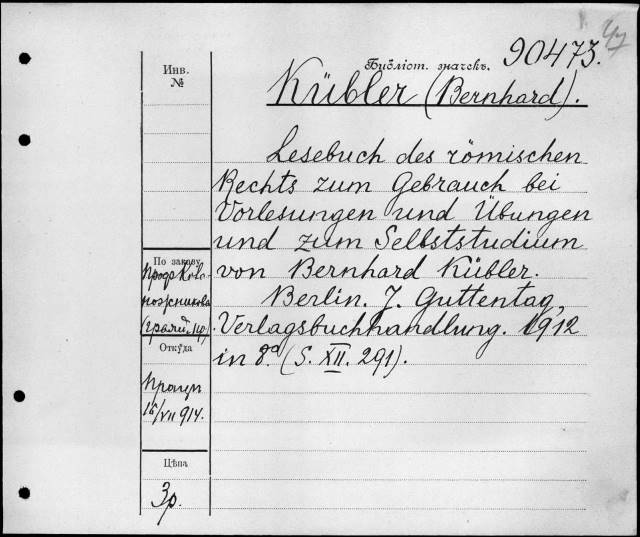 Библіот. значекъ. 90473.
Kübler (Bernhard).
Lesebuch des römischen
Rechts zum Gebrauch bei
Vorlesungen und Übungen
und zum Selbststudium
von Bernhard Kübler.
Berlin. J. Guttentag,
Verlagsbuchhandlung. 1912
in 8º (S. XII. 291).
Инв.
№
По заказу
Откуда
15/VII 914.
Цѣна
3р.